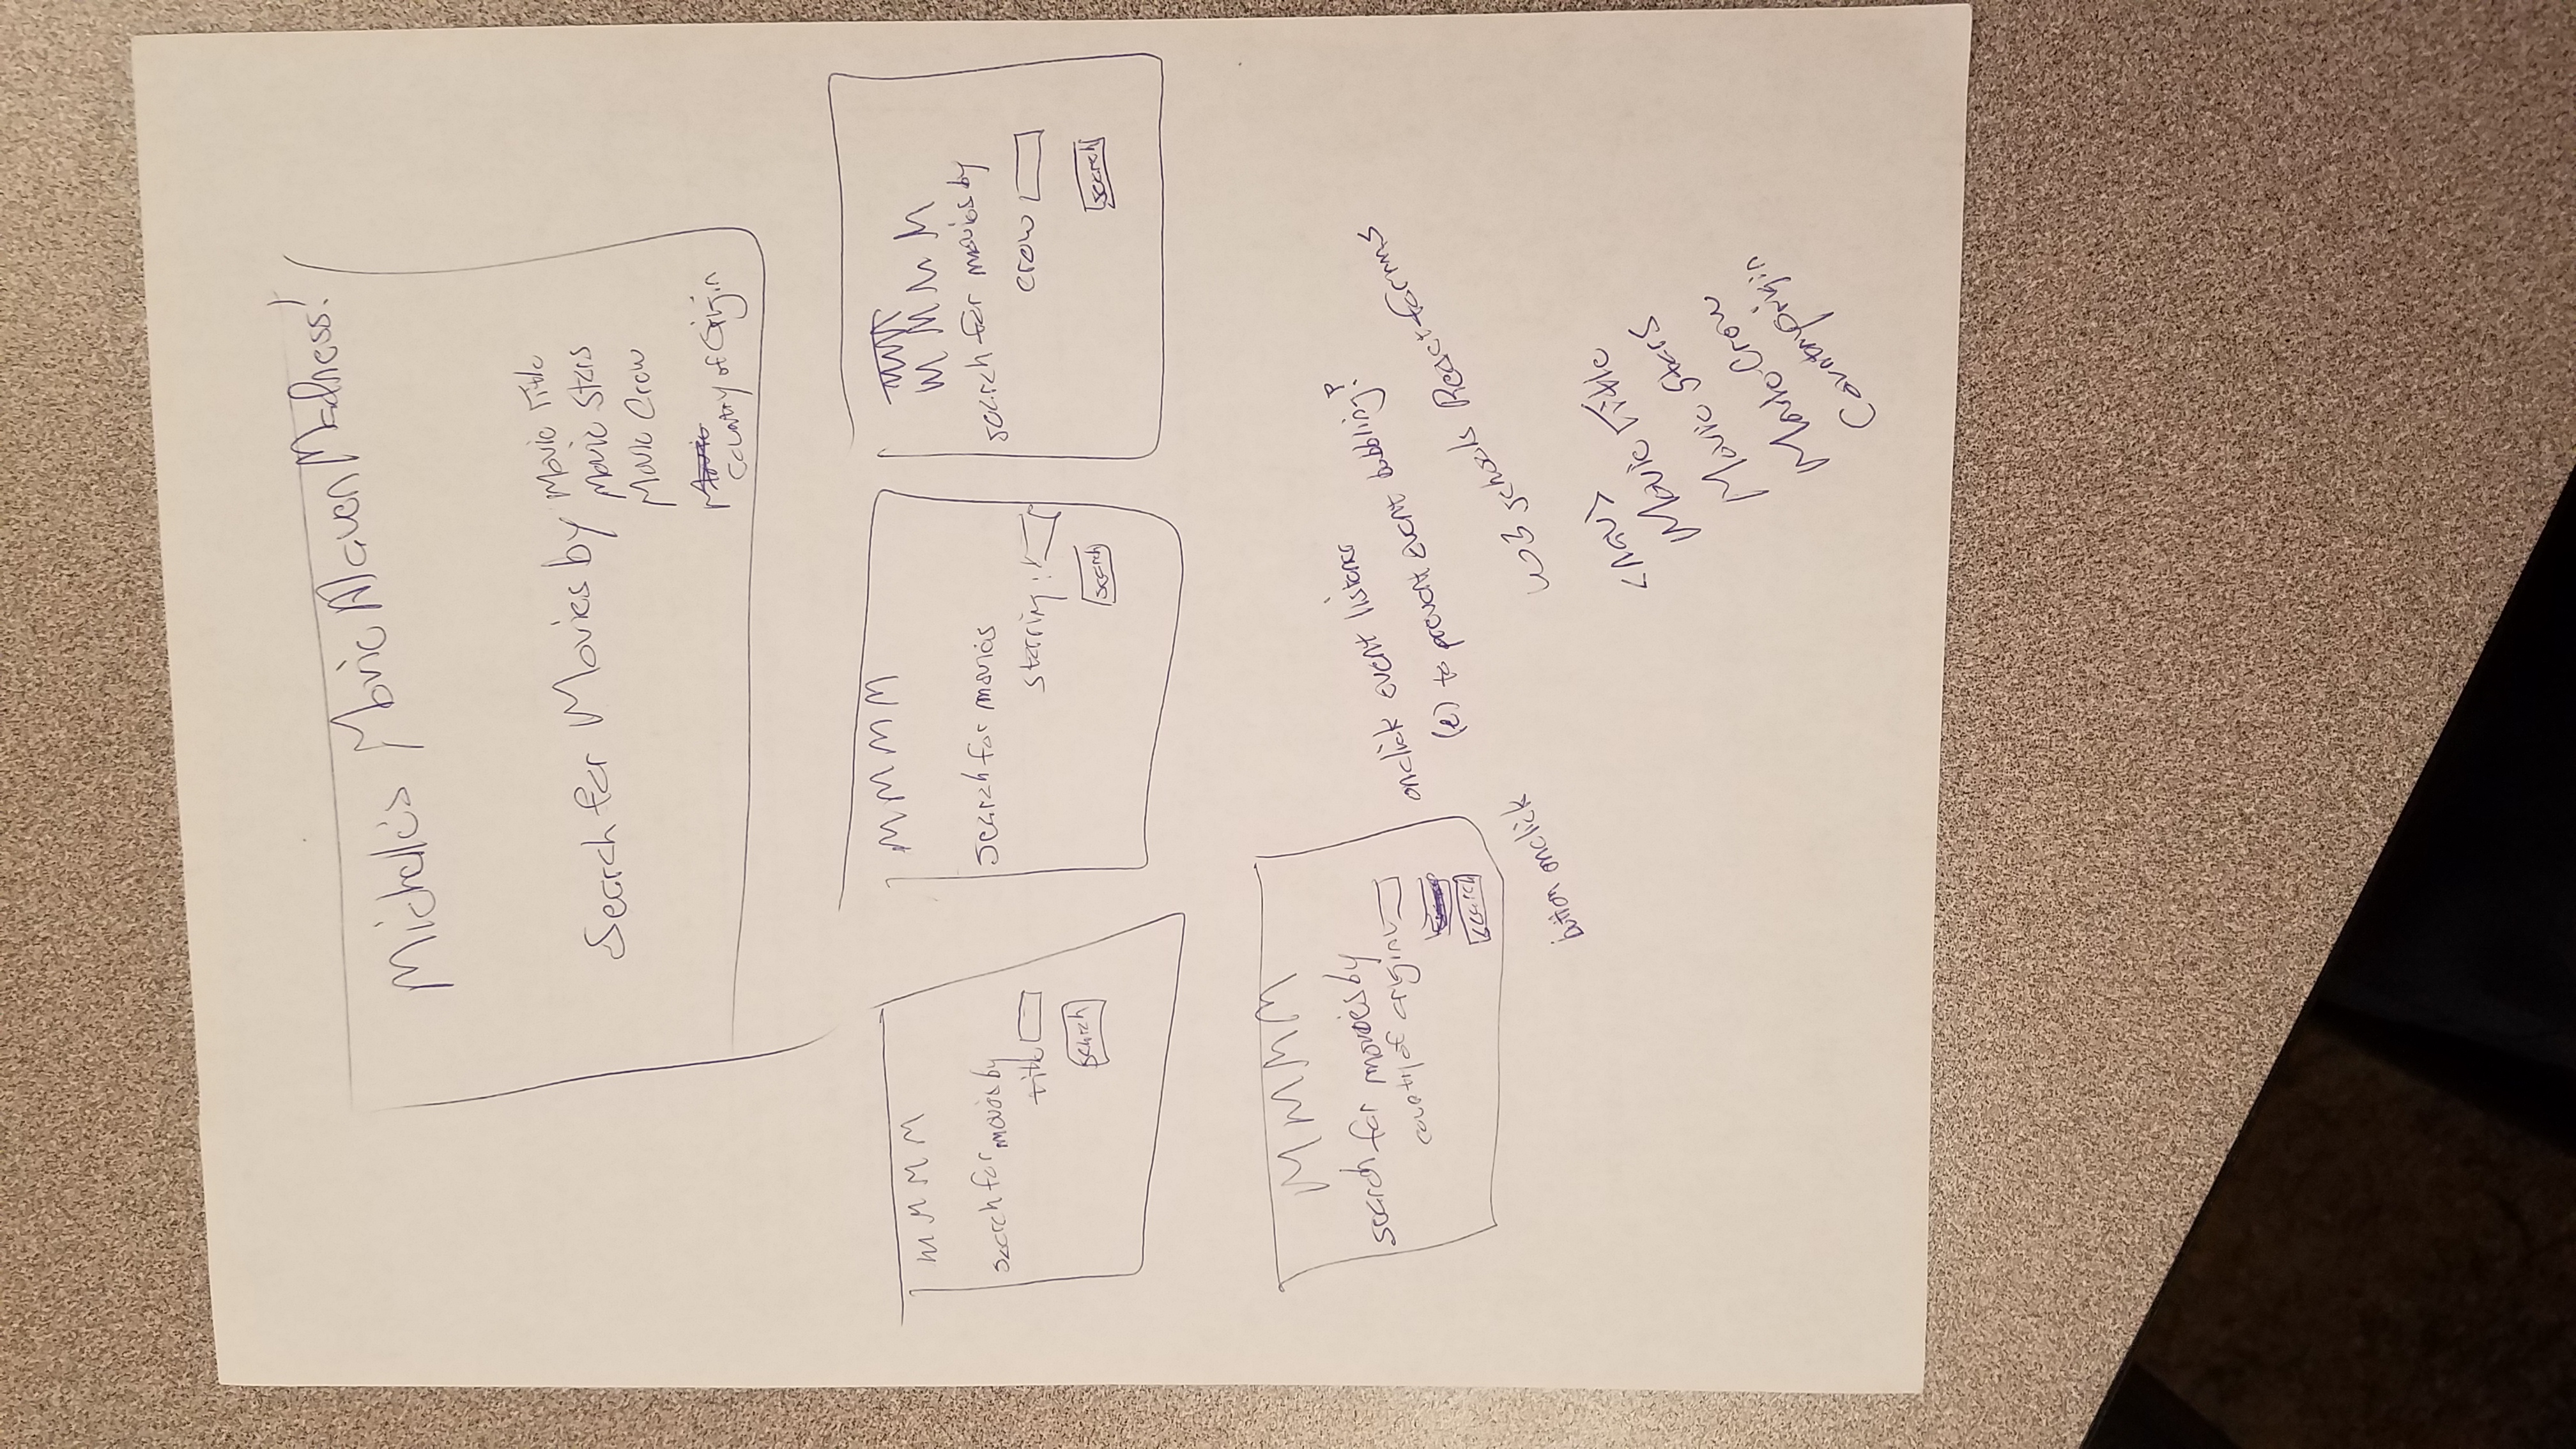 Michelle's Movie Maven Madness!
Search for Movies by
Movie Title
Movie Stars
Movie Crew
Country of Origin
M M M M
search for movies by
title
search
M M M M
search for movies
starring:
search
M M M M
search for movies by
crew
search
M M M M
search for movies by
country of origin
search
onclick event listener
(e) to prevent event bubbling?
button onclick
w3 schools React forms
<nav>
Movie Title
Movie Stars
Movie Crew
Country Origin